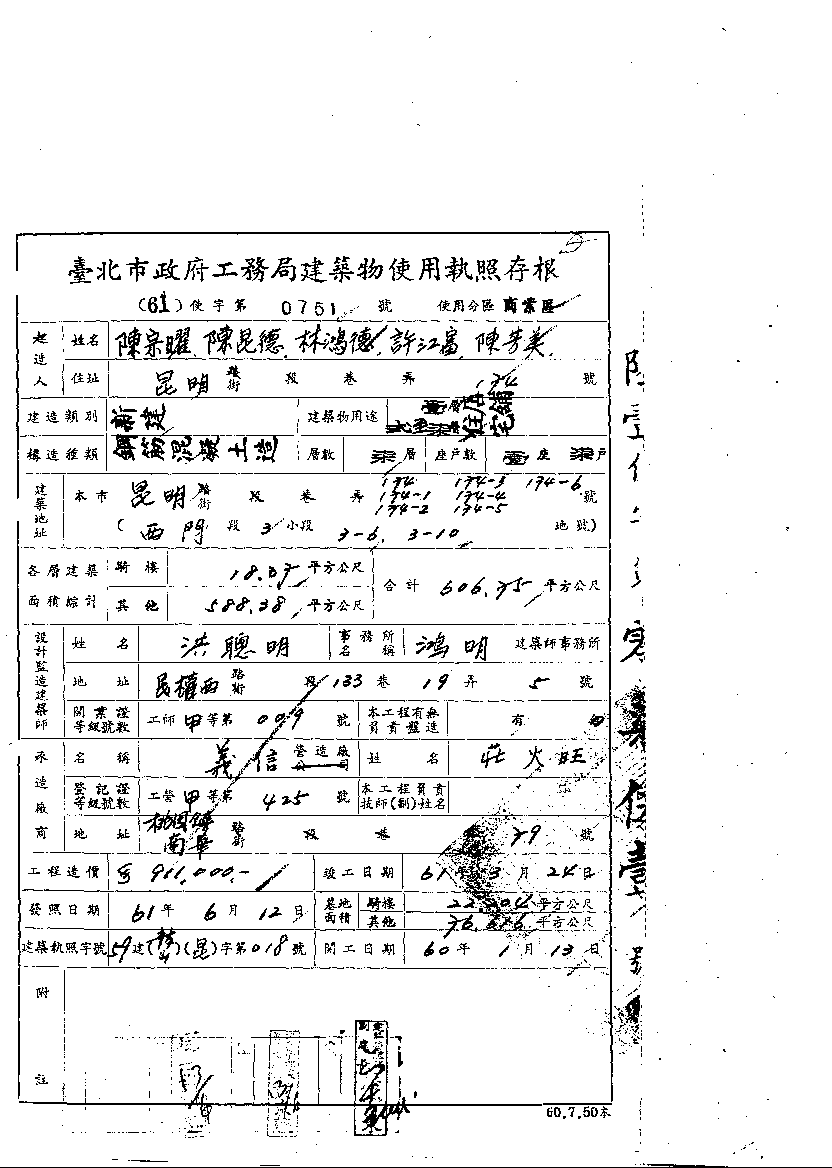 臺北市政府工務局建築物使用執照存根
(61)使字第 0751 號 使用分區 商業區
起造人 姓名 陳宗曜 陳昆德 林鴻德 許江富 陳芳美
住址 昆明 路街 段 巷 弄 174 號
建造類別 新建 建築物用途 壹層 店舖 住宅
構造種類 鋼筋混凝土造 層數 柒層 座戶數 壹座 柒戶
建築地址 本市 昆明 路街 段 巷 弄 174 174-1 174-2 174-3 174-4 174-5 174-6 號
(西門 段 3 小段 3-6, 3-10 地號)
各層建築面積綜計 騎樓 18.37 平方公尺 合計 606.75 平方公尺
其他 588.38 平方公尺
設計監造建築師 姓名 洪聰明 事務所名稱 鴻明 建築師事務所
地址 民權西 路街 段 133 巷 19 弄 5 號
開業證等級號數 工師 甲等第 009 號 本工程有無負責監造 有
承造廠商 名稱 義信 營造廠公司 姓名 莊火旺
登記證等級號數 工營 甲等第 425 號 本工程負責技師(副)姓名
地址 桃園鎮南華 路街 段 巷 79 號
工程造價 911,000.- 竣工日期 61年 3月 24日
發照日期 61年 6月 12日 基地面積 騎樓 22.04 平方公尺
其他 76.676 平方公尺
建築執照字號 59建( )(昆)字第018號 開工日期 60年 1月 13日
附註
60.7.50本